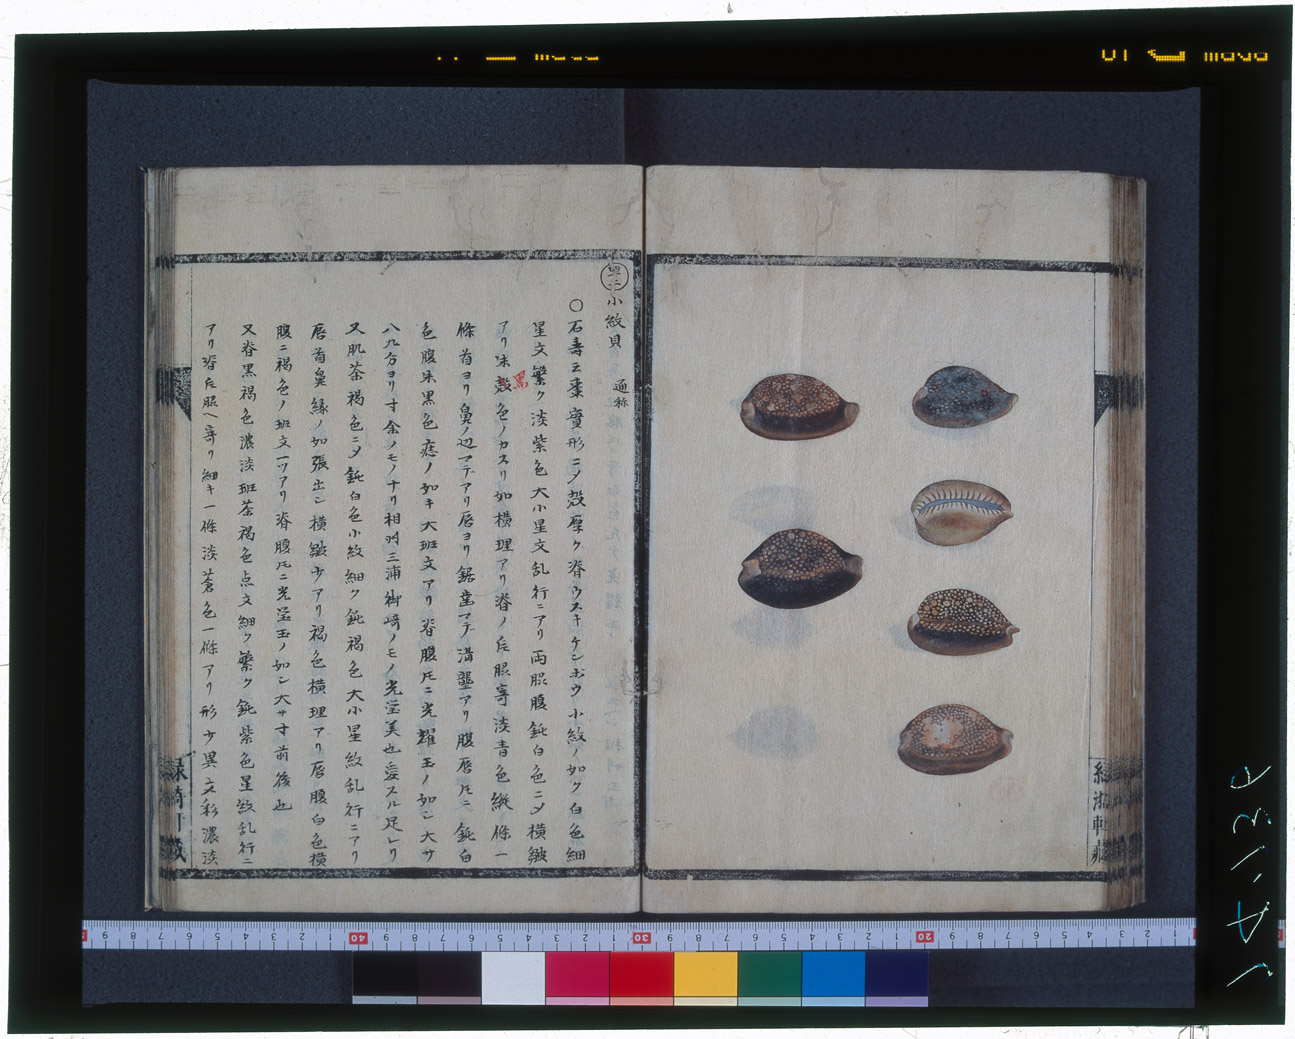 小紋貝 通称
○石壽云棗實形ニメ殻厚ク脊ウスキケンボウ小紋ノ如ク白色細
星文繁ク淡紫色大小星文乱行ニアリ両服腹鈍白色ニメ横皺
アリ末殻色ノカスリ如横理アリ脊ノ左服寄淡青色縦條一
黒
條首ヨリ鼻ノ辺マデアリ唇ヨリ鋸歯マデ溝壟アリ腹唇凡ニ鈍白
色腹末黒色痣ノ如キ大班文アリ脊腹凡ニ光耀玉ノ如シ大サ
八九分ヨリ寸余ノモノナリ相州三浦御崎ノモノ光瑩美也愛スル足レリ
又肌茶褐色ニメ鈍白色小紋細ク鈍褐色大小星紋乱行ニアリ
唇首鼻縁ノ如張出シ横皺少アリ褐色横理アリ唇腹白色横
腹ニ褐色ノ班文一ツアリ脊腹凡ニ光瑩玉ノ如シ大サ寸前後也
又脊黒褐色濃淡班茶褐色点文細ク繁ク鈍紫色星紋乱行ニ
アリ脊左服ヘ寄リ細キ一條淡蒼色一條アリ形少異文彩濃淡